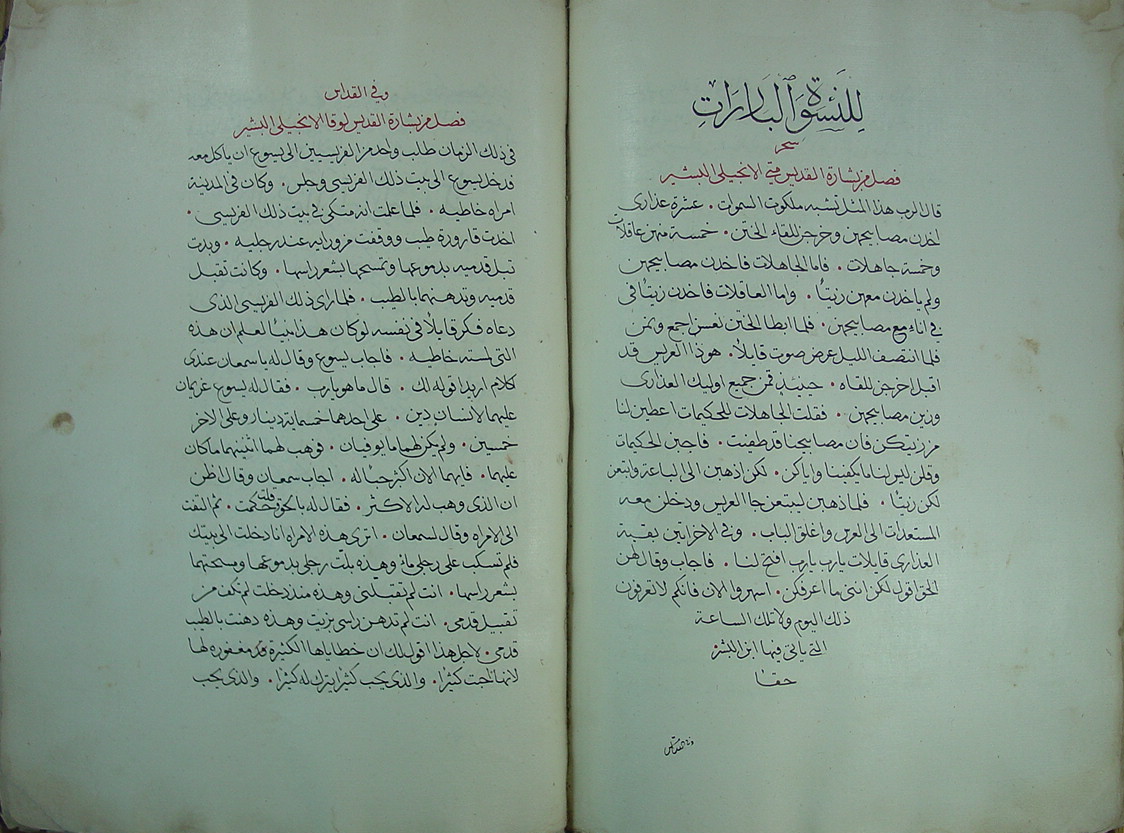 لِلنِّسوَةِ البَارَّات
سحر
فصل من بشارة القديس متى الانجيلى البشير
قال الرب هذا المثل تشبه ملكوت السموات • عشرة عذارى
اخدن مصابيحهن وخرجن للقاء الختن • خمسة منهن عاقلات
وخمسة جاهلات • فاما الجاهلات فاخدن مصابيحهن
ولم ياخدن معهن زيتًا • واما العاقلات فاخدن زيتًا في
في اناء مع مصابيحهن • فلما ابطا الختن نعسن اجمع ونمن
فلما انتصف الليل عرض صوت قايلًا • هوذا العريس قد
اقبل اخرجن للقاه • حينيذ قمن جميع اوليك العذارى
وزين مصابيحهن • فقلت الجاهلات للحكيمات اعطين لنا
من زيتكن فان مصابيحنا قد طفيت • فاجبن الحكيمات
وقلن ليس لنا ما يكفينا واياكن • لكن اذهبن الى الباعة وابتعن
لكن زيتًا • فلما ذهبن ليبتعن جا العريس ودخلن معه
المستعدات الى العرس واغلق الباب • وفي الاخر اتين بقية
العذارى قايلات يارب يارب افتح لنا • فاجاب وقال لهن
الحق اقول لكن اننى ما اعرفكن • اسهروا الان فانكم لا تعرفون
ذلك اليوم ولا تلك الساعة
التى ياتى فيها ابن البشر
حقًا
وفي القداس
فصل من بشارة القديس لوقا الانجيلى البشير
في ذلك الزمان طلب واحد من الفريسيين الى يسوع ان ياكل معه
فدخل يسوع الى بيت ذلك الفريسى وجلس • وكان في المدينة
امراه خاطيه • فلما علمت انه متكى في بيت ذلك الفريسى •
اخدت قارورة طيب ووقفت من ورايه عند رجليه • وبدت
تبل قدميه بدموعها وتمسحها بشعر راسها • وكانت تقبل
قدميه وتدهنهما بالطيب • فلما راى ذلك الفريسى الذى
دعاه فكر قايلًا في نفسه لو كان هذا نبيًا لعلم ان هذه
التى لمسته خاطيه • فاجاب يسوع وقال له يا سمعان عندى
كلام اريد اقوله لك • قال ما هو يارب • فقال له يسوع غريمان
عليهما لانسان دين • على احدهما خمسمايه دينار وعلى الاخر
خمسين • ولم يكن لهما ما يوفيان • فوهب لهما اثنينهما ما كان
عليهما • فايهما الان اكثر حبًا له • اجاب سمعان وقال اظن
ان الذى وهب له الاكثر • فقال له بالحق حكمت • ثم التفت
الى الامراه وقال لسمعان • اترى هذه الامراه انا دخلت الى بيتك
فلم تسكب على رجلى ماءً وهذه بلّت رجلى بدموعها ومسحتهما
بشعر راسها • انت لم تقبلنى وهذه مند دخلت لم تكف من
تقبيل قدمى • انت لم تدهن راسى بزيت وهذه دهنت بالطيب
قدمى • لاجل هذا اقول لك ان خطاياها الكثيرة قد مغفوره لها
لانها احبت كثيرًا • والذى يحب كثيرًا يترك له كثيرًا • والذى يحب